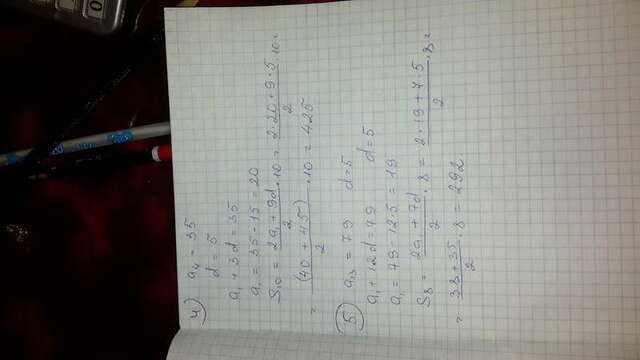 4) a₄ = 35
d = 5
a₁ + 3d = 35
a₁ = 35 - 15 = 20
S₁₀ = (2a₁ + 9d)/2 · 10 = (2·20 + 9·5)/2 · 10 =
= (40 + 45)/2 · 10 = 425
5) a₁₃ = 79 d = 5
a₁ + 12d = 79 d = 5
a₁ = 79 - 12·5 = 19
S₈ = (2a₁ + 7d)/2 · 8 = (2·19 + 7·5)/2 · 8 =
= (38 + 35)/2 · 8 = 292.